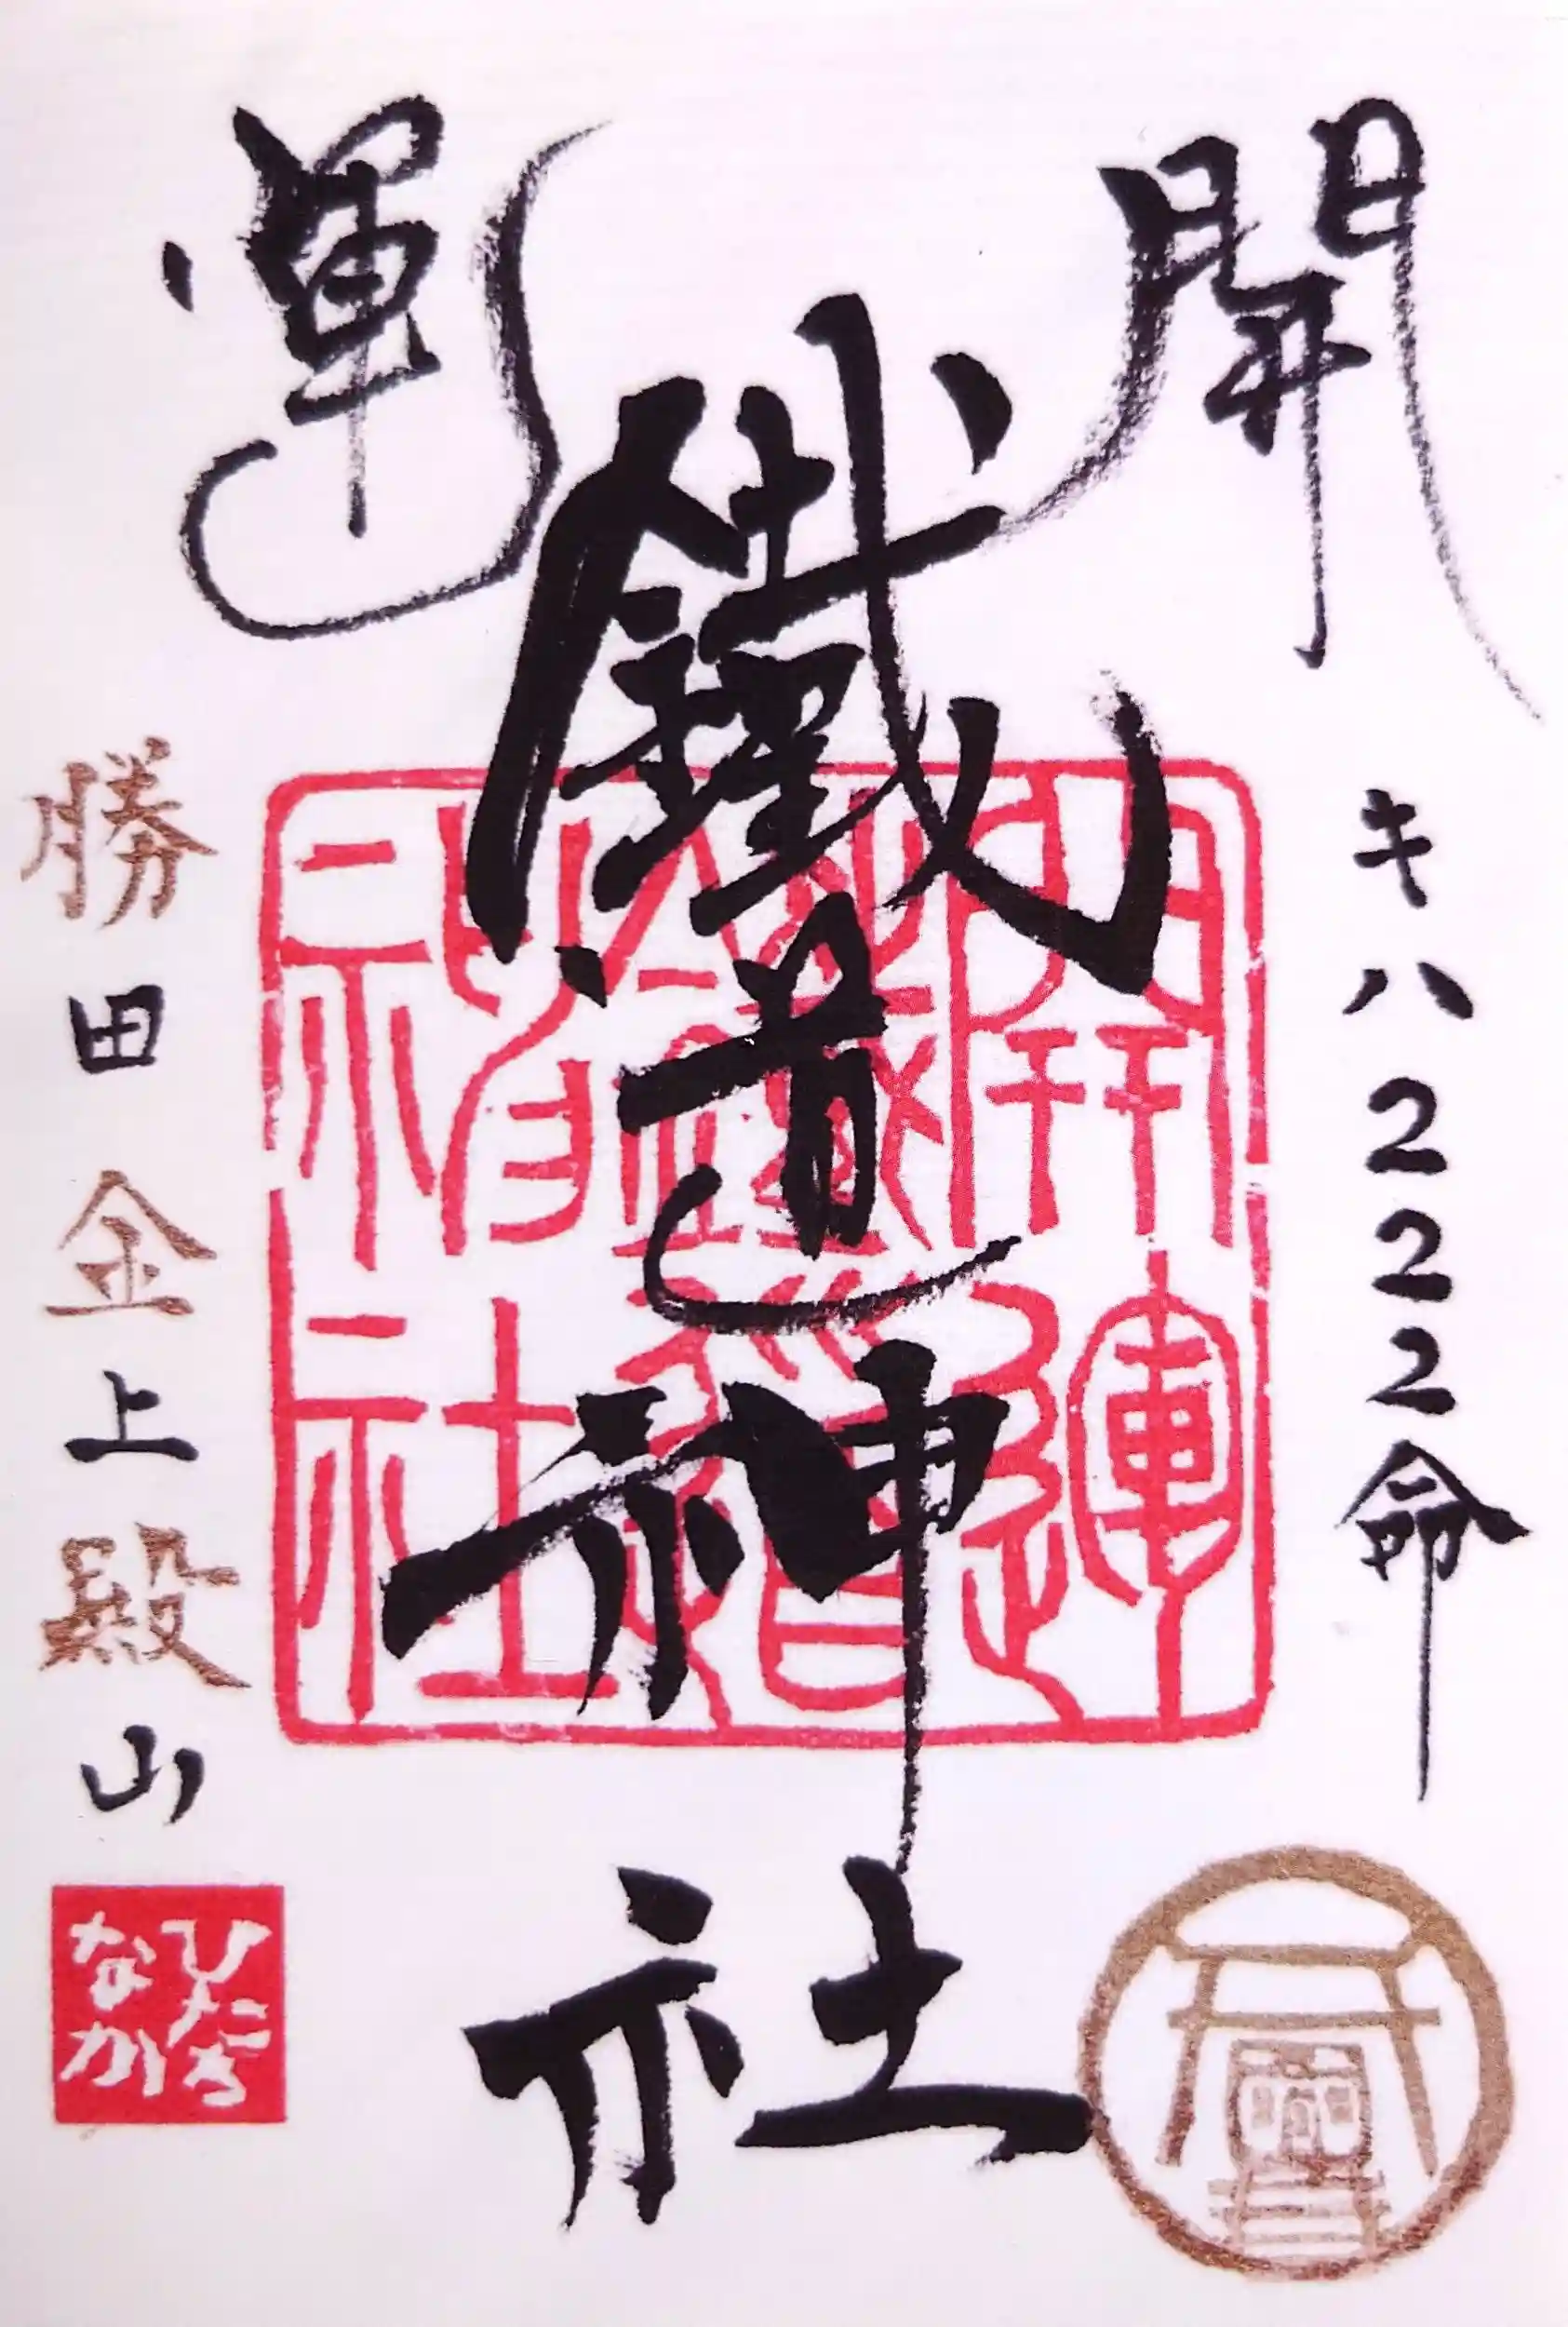 開運
鐵道神社
キハ222命
勝田金上殿山
開運
鐵道
神社
ひたち
なか